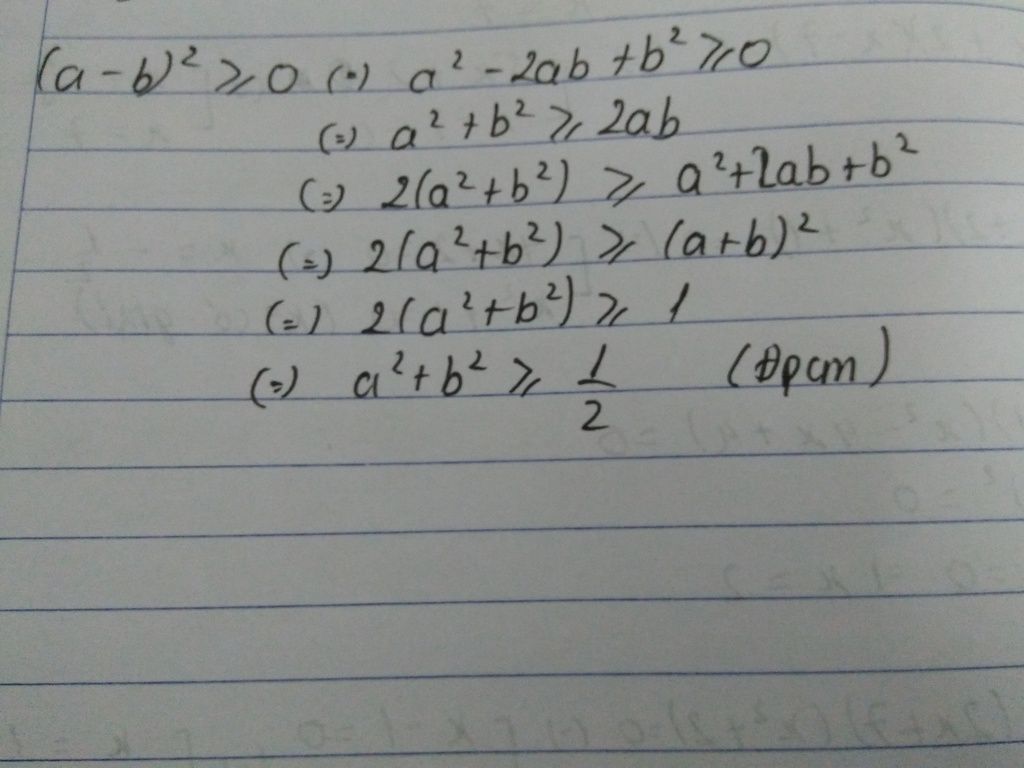 (a-b)² ≥ 0 (=) a² - 2ab + b² ≥ 0
(=) a² + b² ≥ 2ab
(=) 2(a² + b²) ≥ a² + 2ab + b²
(=) 2(a² + b²) ≥ (a+b)²
(=) 2(a² + b²) ≥ 1
(=) a² + b² ≥ 1/2 (Đpcm)